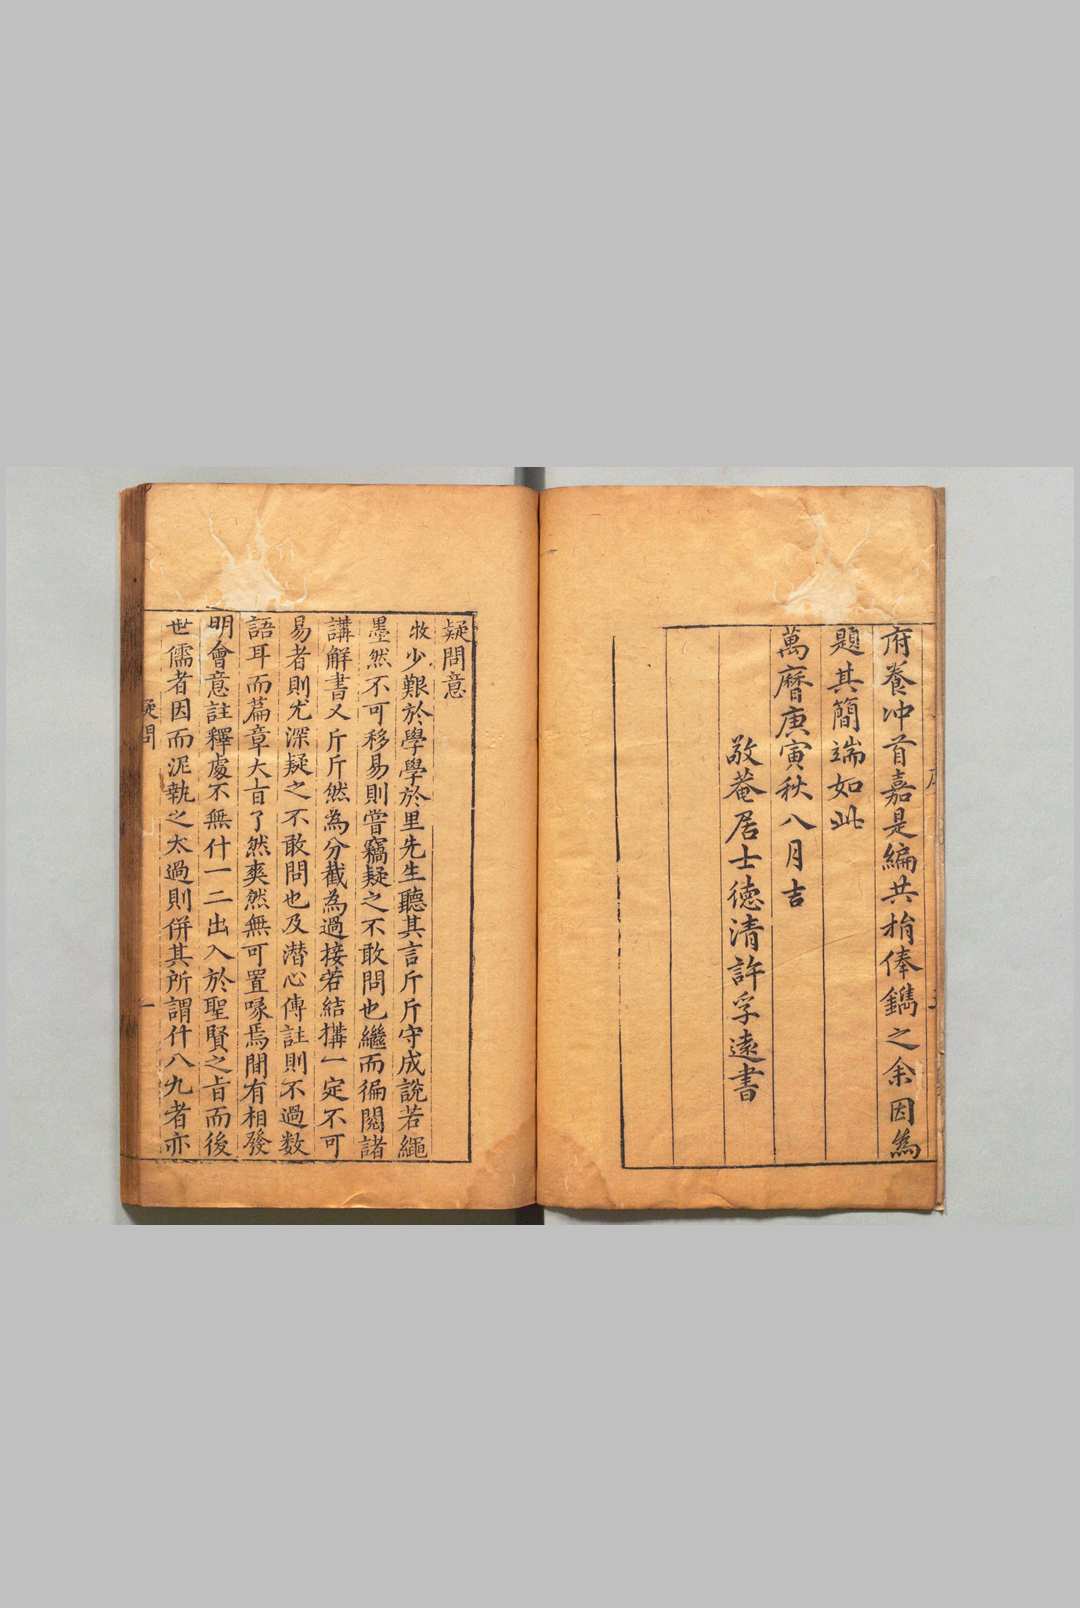 府養冲首嘉是編共捐俸鐫之余因為
題其簡端如此
萬曆庚寅秋八月吉
敬菴居士德清許孚遠書
疑問意
牧少艱於學學於里先生聽其言斤斤守成說若繩
墨然不可移易則嘗竊疑之不敢問也繼而徧閱諸
講解書又斤斤然為分截為過接若結搆一定不可
易者則尤深疑之不敢問也及潛心傳註則不過数
語耳而篇章大旨了然爽然無可置喙焉間有相發
明會意註釋處不無什一二出入於聖賢之旨而後
世儒者因而泥執之太過則併其所謂什八九者亦
疑問
一